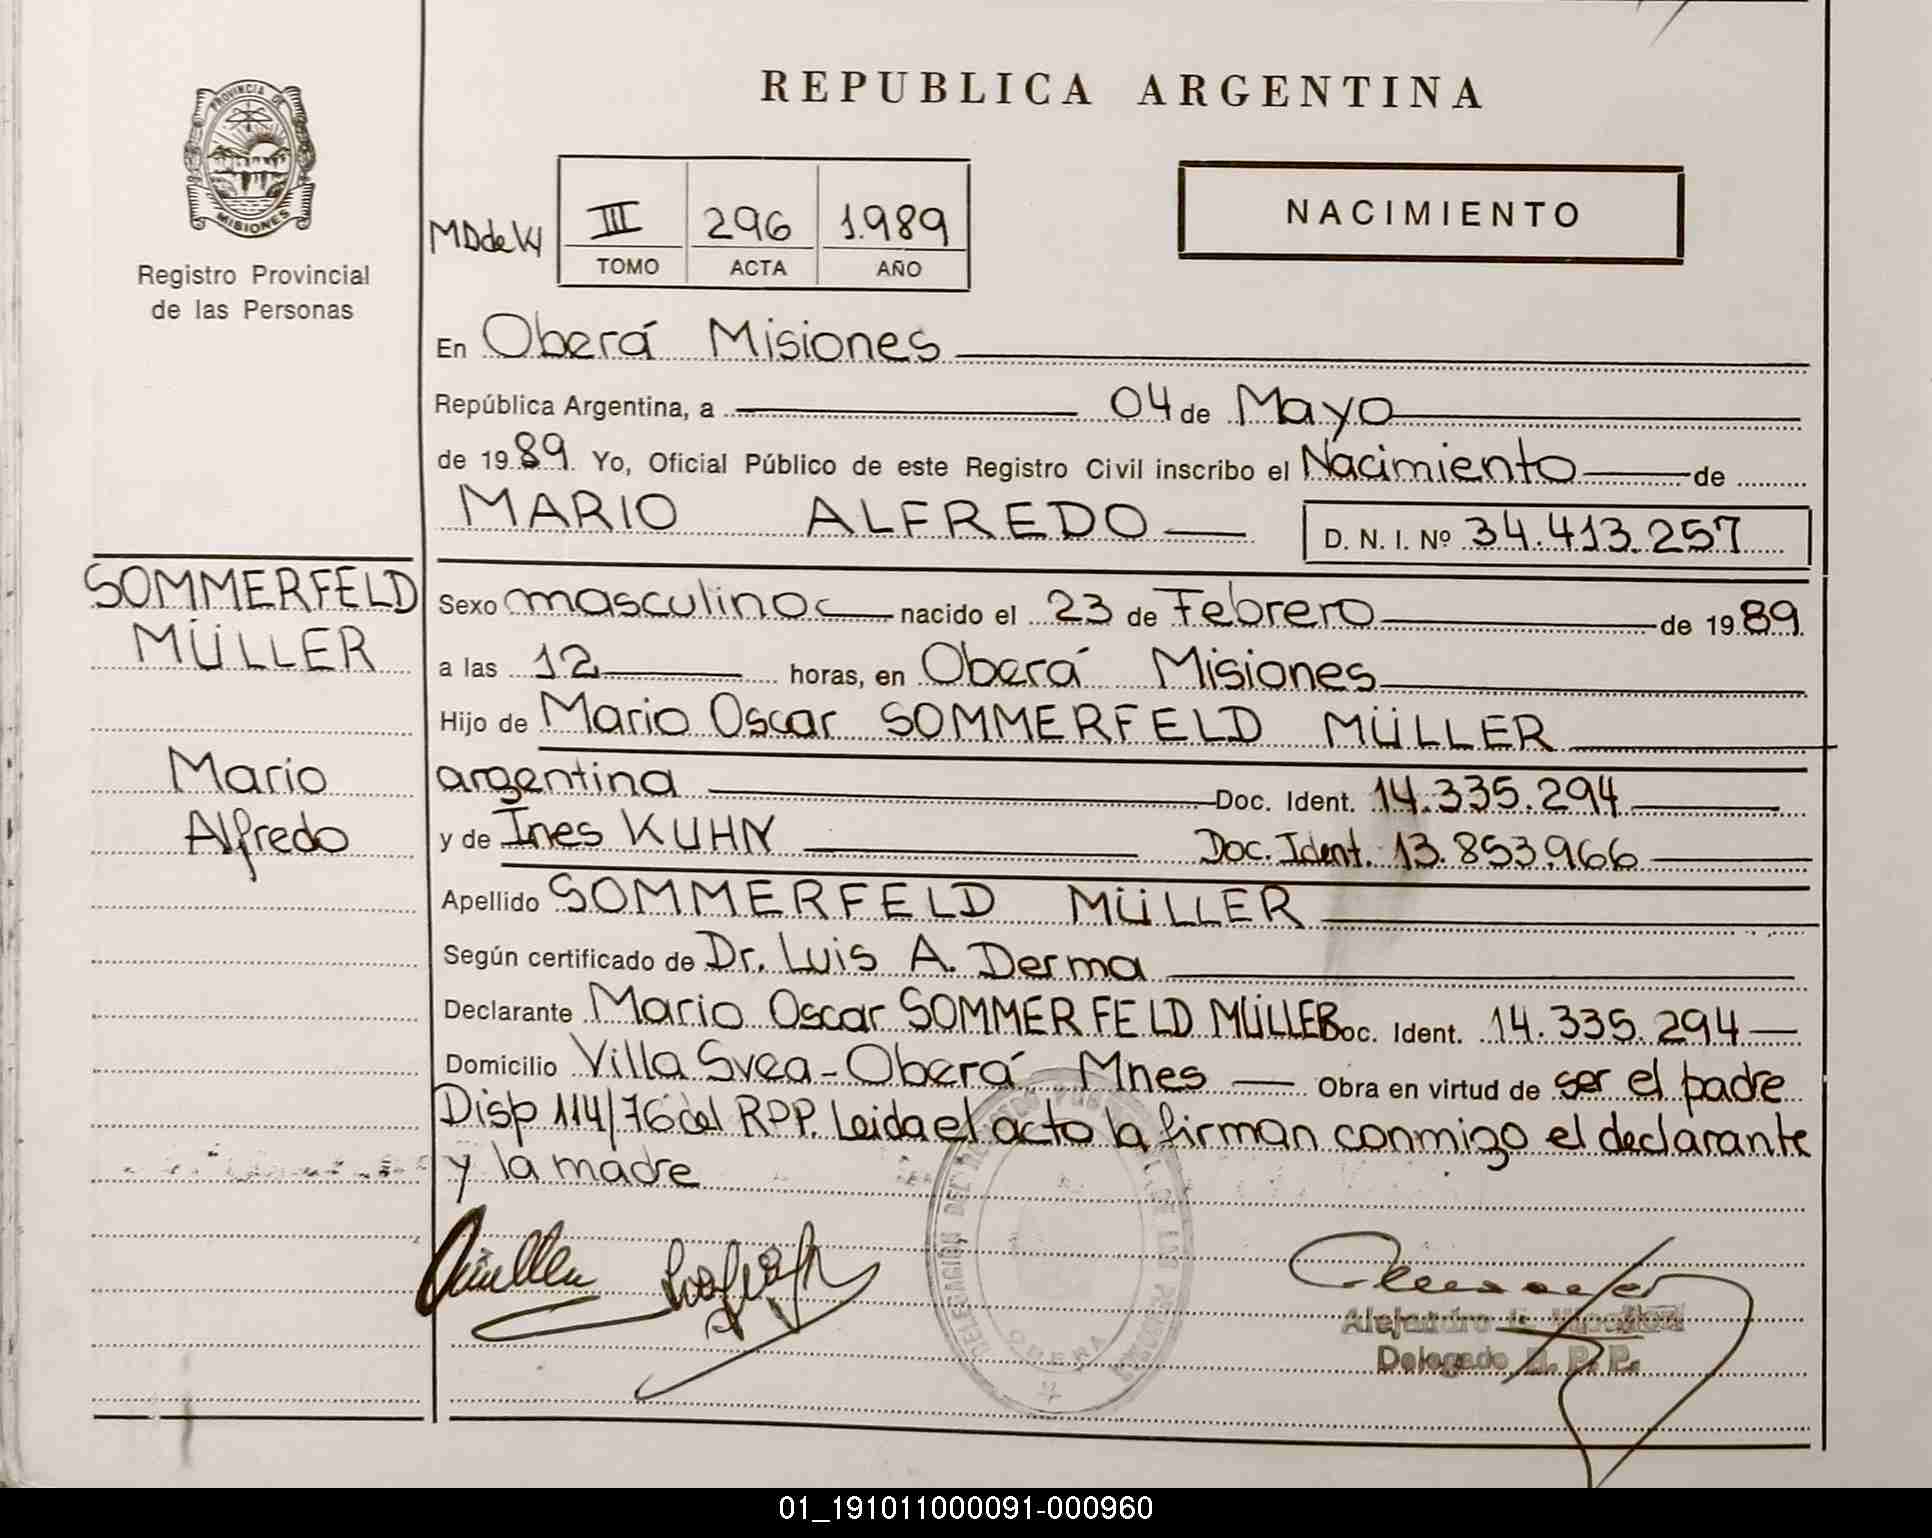 PROVINCIA DE
MISIONES
Registro Provincial
de las Personas
REPUBLICA ARGENTINA
NACIMIENTO
III 296 1.989
TOMO ACTA AÑO
En Oberá Misiones
República Argentina, a 04 de Mayo
de 1989 Yo, Oficial Público de este Registro Civil inscribo el Nacimiento de
MARIO ALFREDO D. N. I. Nº 34.413.257
SOMMERFELD
MÜLLER
Mario
Alfredo
Sexo masculino nacido el 23 de Febrero de 1989
a las 12 horas, en Oberá Misiones
Hijo de Mario Oscar SOMMERFELD MÜLLER
argentina Doc. Ident. 14.335.294
y de Ines KUHN Doc. Ident. 13.853.966
Apellido SOMMERFELD MÜLLER
Según certificado de Dr. Luis A. Derma
Declarante Mario Oscar SOMMERFELD MÜLLER Doc. Ident. 14.335.294
Domicilio Villa Svea - Oberá Mnes Obra en virtud de ser el padre
Disp 114/76 del RPP. Leida el acto la firman conmigo el declarante
y la madre
DELEGACIÓN DEL
OBERA
Alejandro
Delegado R. P. P.
01_191011000091-000960